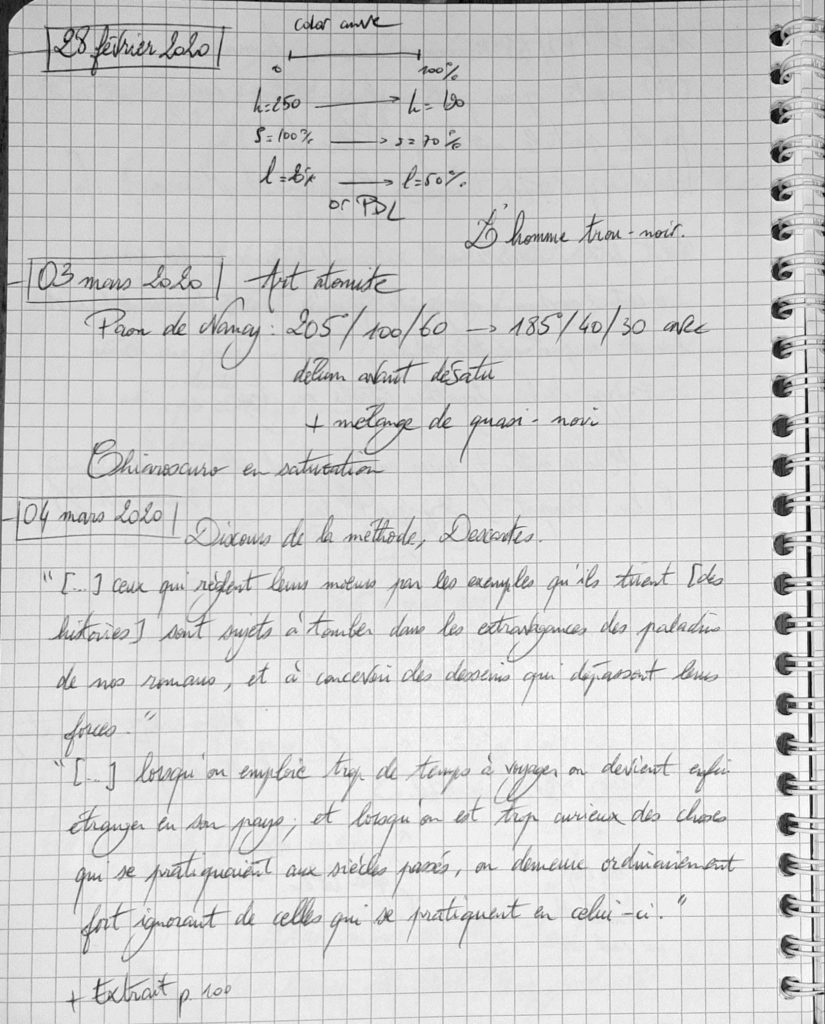 28 février 2020
color curve
0 100%
h=250 → h=190
S=100% → s=70%
l= → l=50%
or PDL
L'homme trou-noir.
03 mars 2020 Art atomiste
Paon de Nancy: 205°/100/60 → 185°/40/30 avec
délum avant désatu
+ mélange de quasi-noir
Chiaroscuro en saturation
04 mars 2020 Discours de la méthode, Descartes.
"[...] ceux qui règlent leurs mœurs par les exemples qu'ils tirent [des
histoires] sont sujets à tomber dans les extravagances des paladins
de nos romans, et à concevoir des desseins qui dépassent leurs
forces."
"[...] lorsqu'on emploie trop de temps à voyager on devient enfin
étranger en son pays; et lorsqu'on est trop curieux des choses
qui se pratiquaient aux siècles passés, on demeure ordinairement
fort ignorant de celles qui se pratiquent en celui-ci."
+ Extrait p. 100